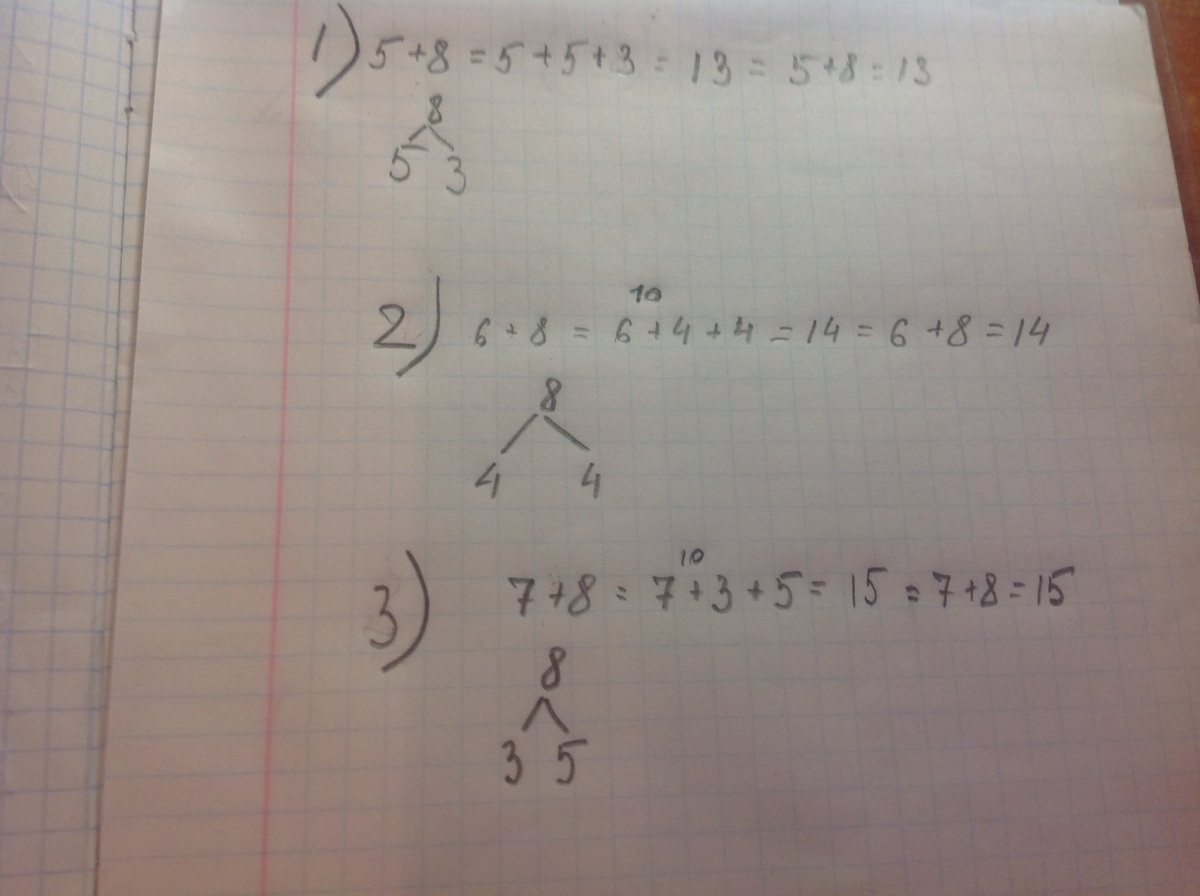 1) 5+8 = 5+5+3 = 13 = 5+8 = 13
8
5 3
10
2) 6+8 = 6+4+4 = 14 = 6+8 = 14
8
4 4
10
3) 7+8 = 7+3+5 = 15 = 7+8 = 15
8
3 5